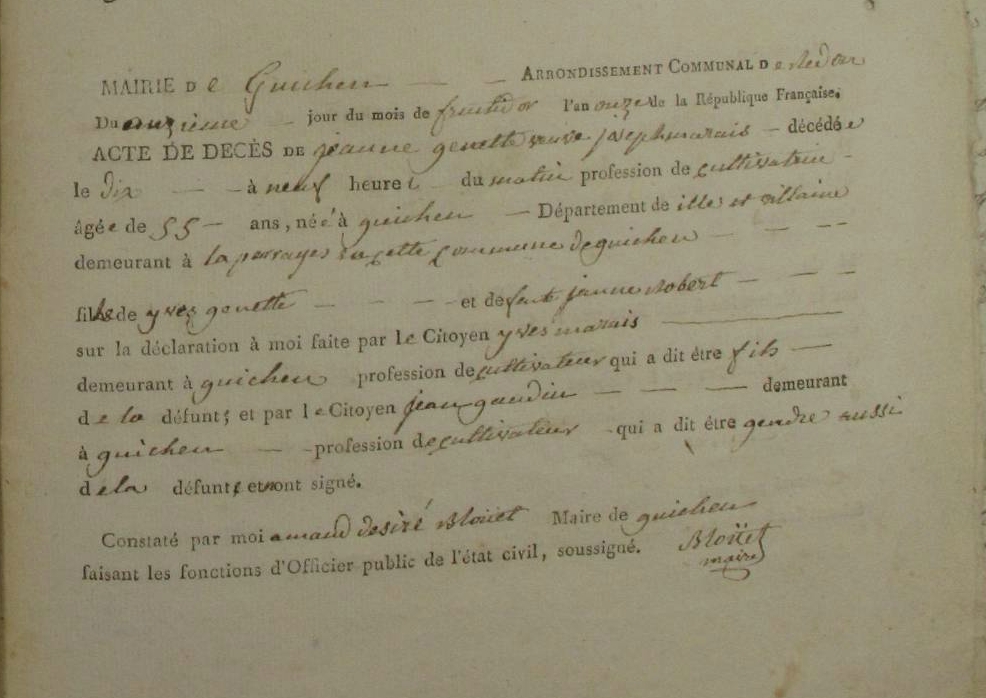 MAIRIE D e Guichen — — ARRONDISSEMENT COMMUNAL D e Redon
Du onzieme — jour du mois de fructidor l'an onze de la République Française.
ACTE DE DECÈS DE jeanne genette veuve joseph marais — décédée
le dix — — à neuf heures du matin profession de cultivatrice —
âgée de 55 — ans, née à guichen — Département de ille et villaine
demeurant à la en cette commune de guichen — — — —
fille de yves genette — — — et de feut janne Robert — — —
sur la déclaration à moi faite par le Citoyen yves marais —
demeurant à guichen profession de cultivateur qui a dit être fils —
d e la défunte; et par le Citoyen jean gaudin — — — demeurant
à guichen — — profession de cultivateur — qui a dit être gendre aussi
d e la défunte et ont signé.
Constaté par moi amand desiré Blouet Maire de guichen
faisant les fonctions d'Officier public de l'état civil, soussigné. Bloüet
maire